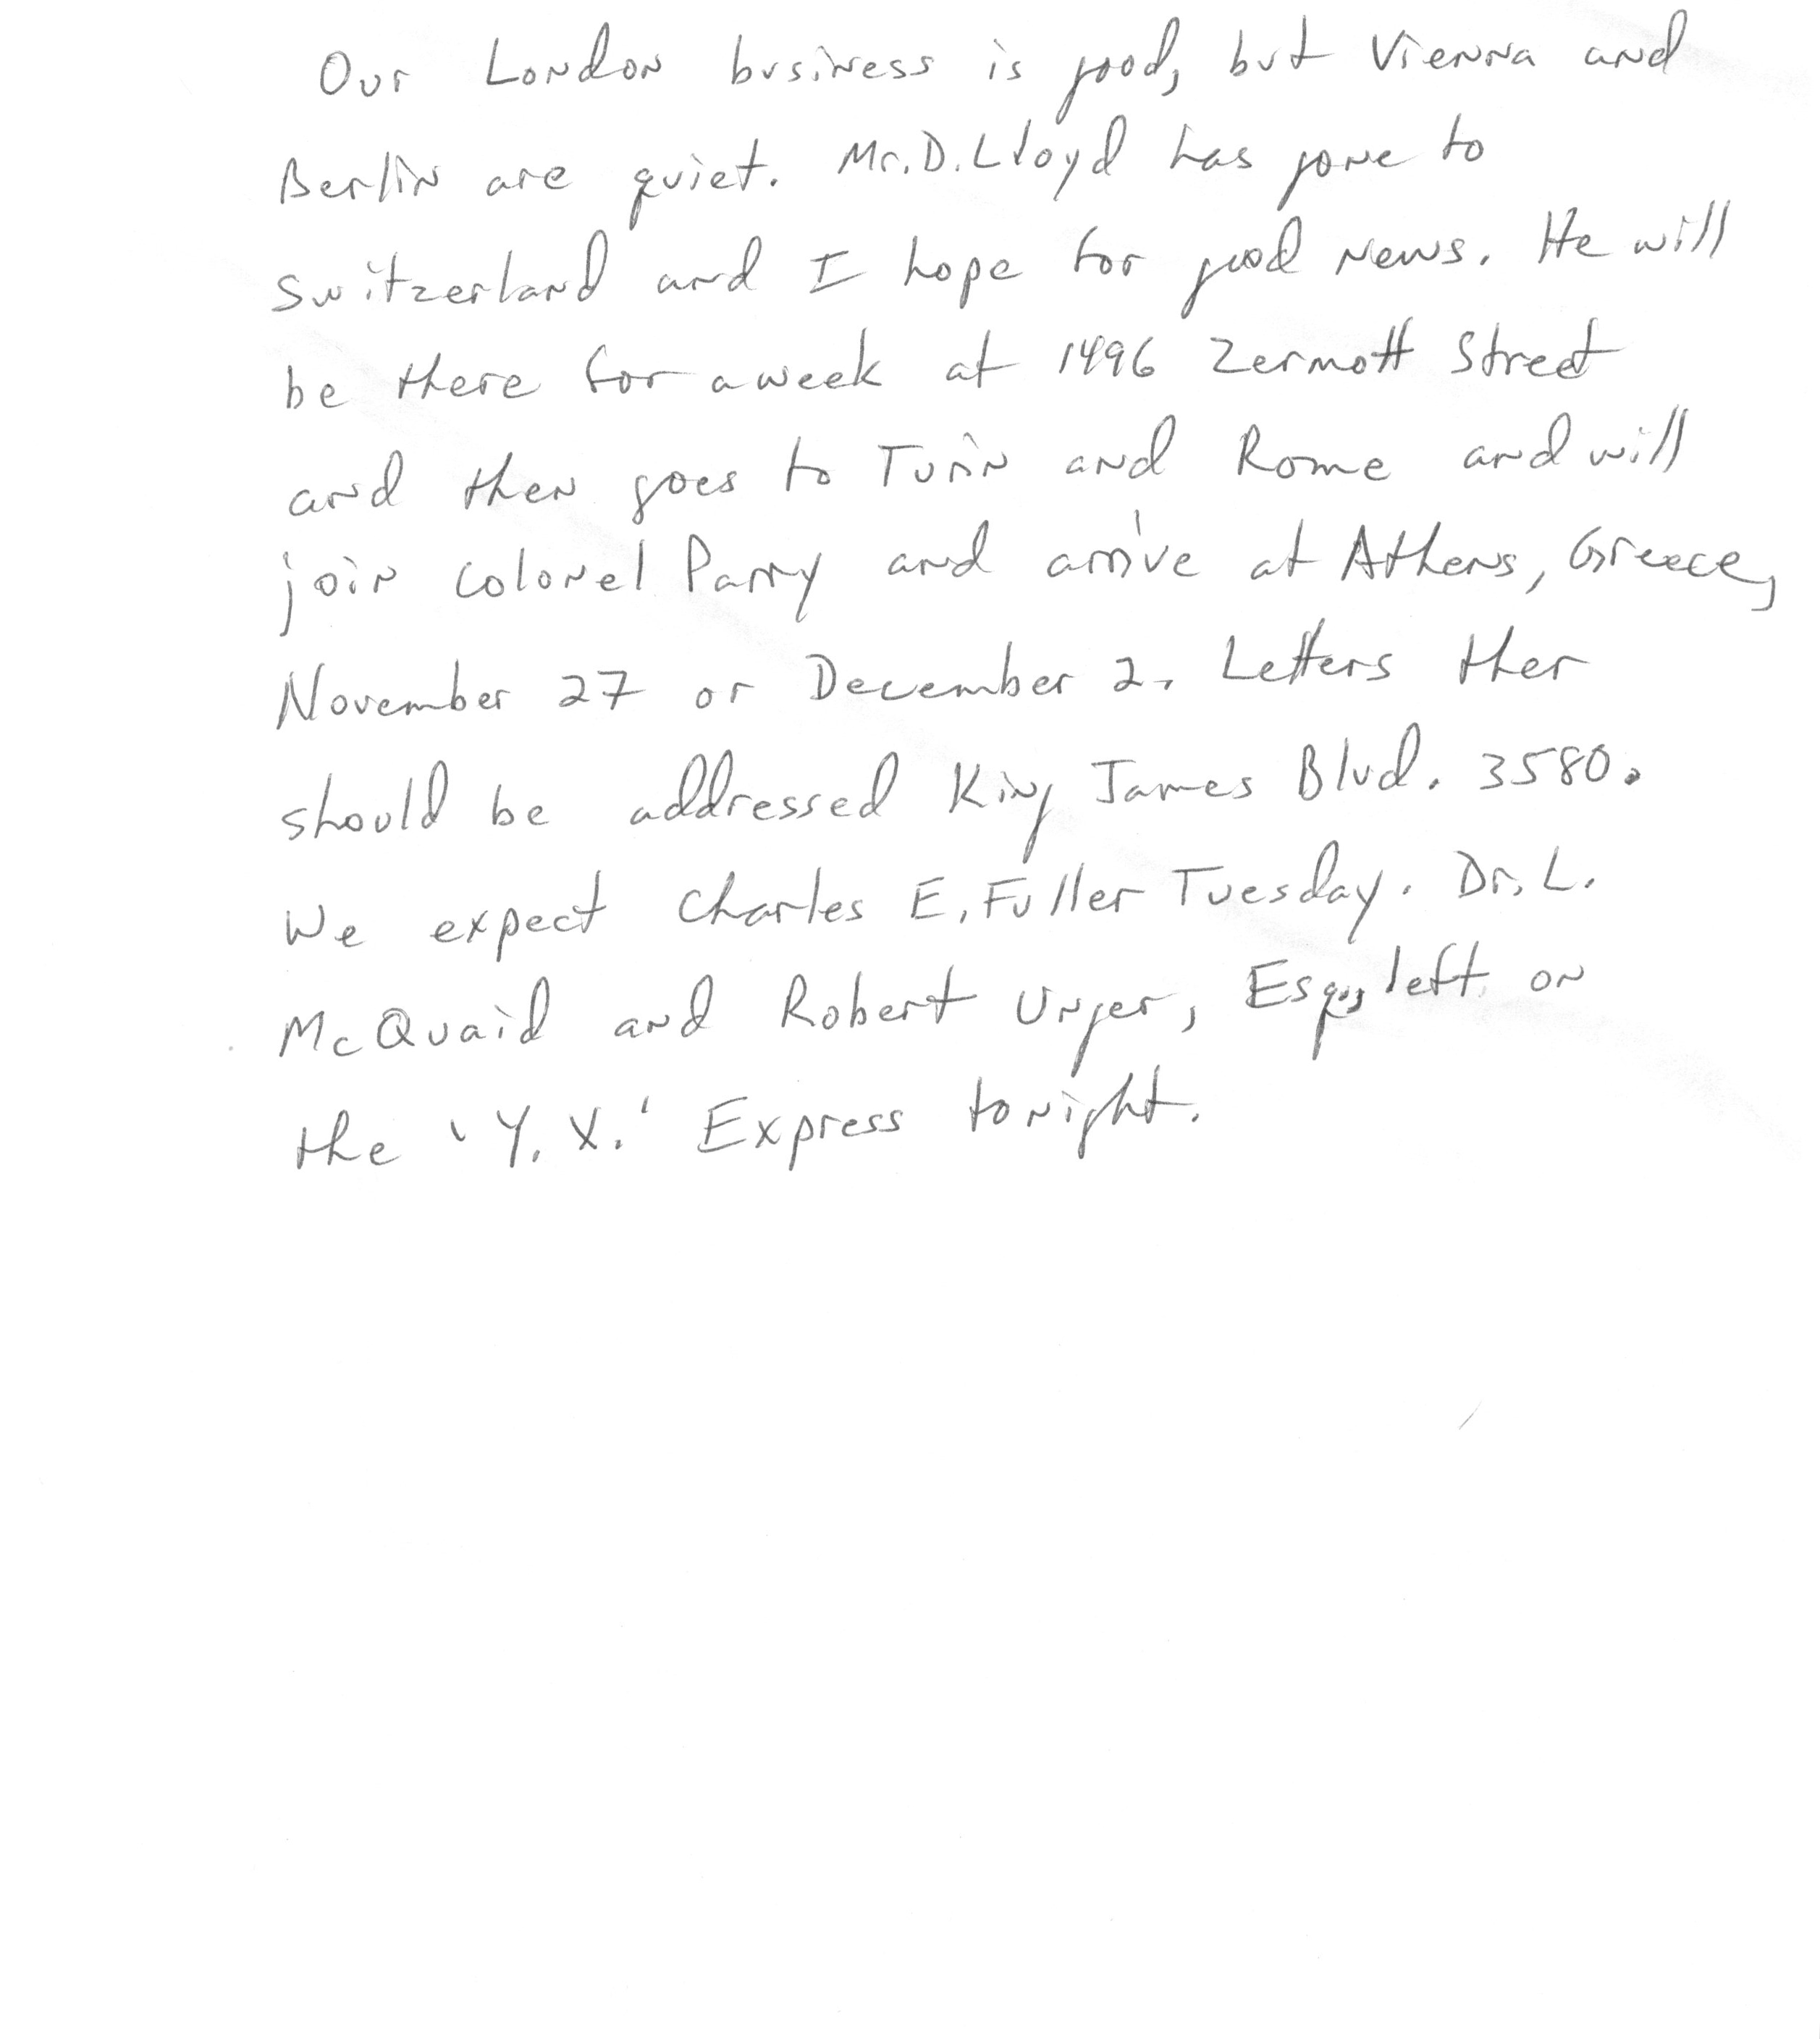 Our London business is good, but Vienna and
Berlin are quiet. Mr. D. Lloyd has gone to
Switzerland and I hope for good news. He will
be there for a week at 1496 Zermott Street
and then goes to Turin and Rome and will
join Colonel Parry and arrive at Athens, Greece,
November 27 or December 2. Letters ther
should be addressed King James Blvd. 3580.
We expect Charles E. Fuller Tuesday. Dr. L.
McQuaid and Robert Unger, Esq., left on
the 'Y. X.' Express tonight.